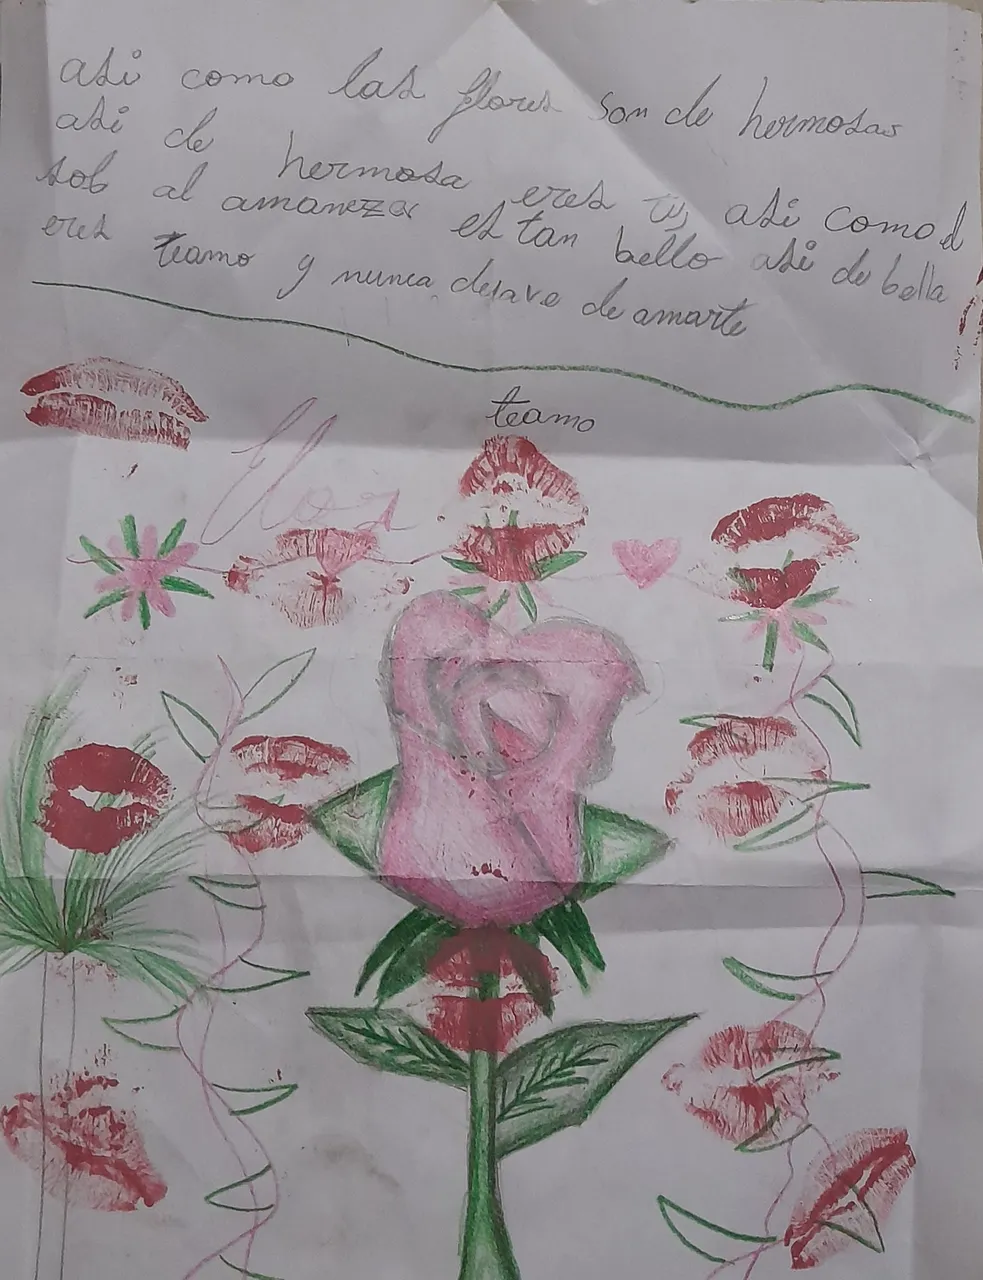 asi como las flores son de hermosas
asi de hermosa eres tu, asi como el
sol al amanezer es tan bello asi de bella
eres teamo y nunca dejave de amarte
teamo